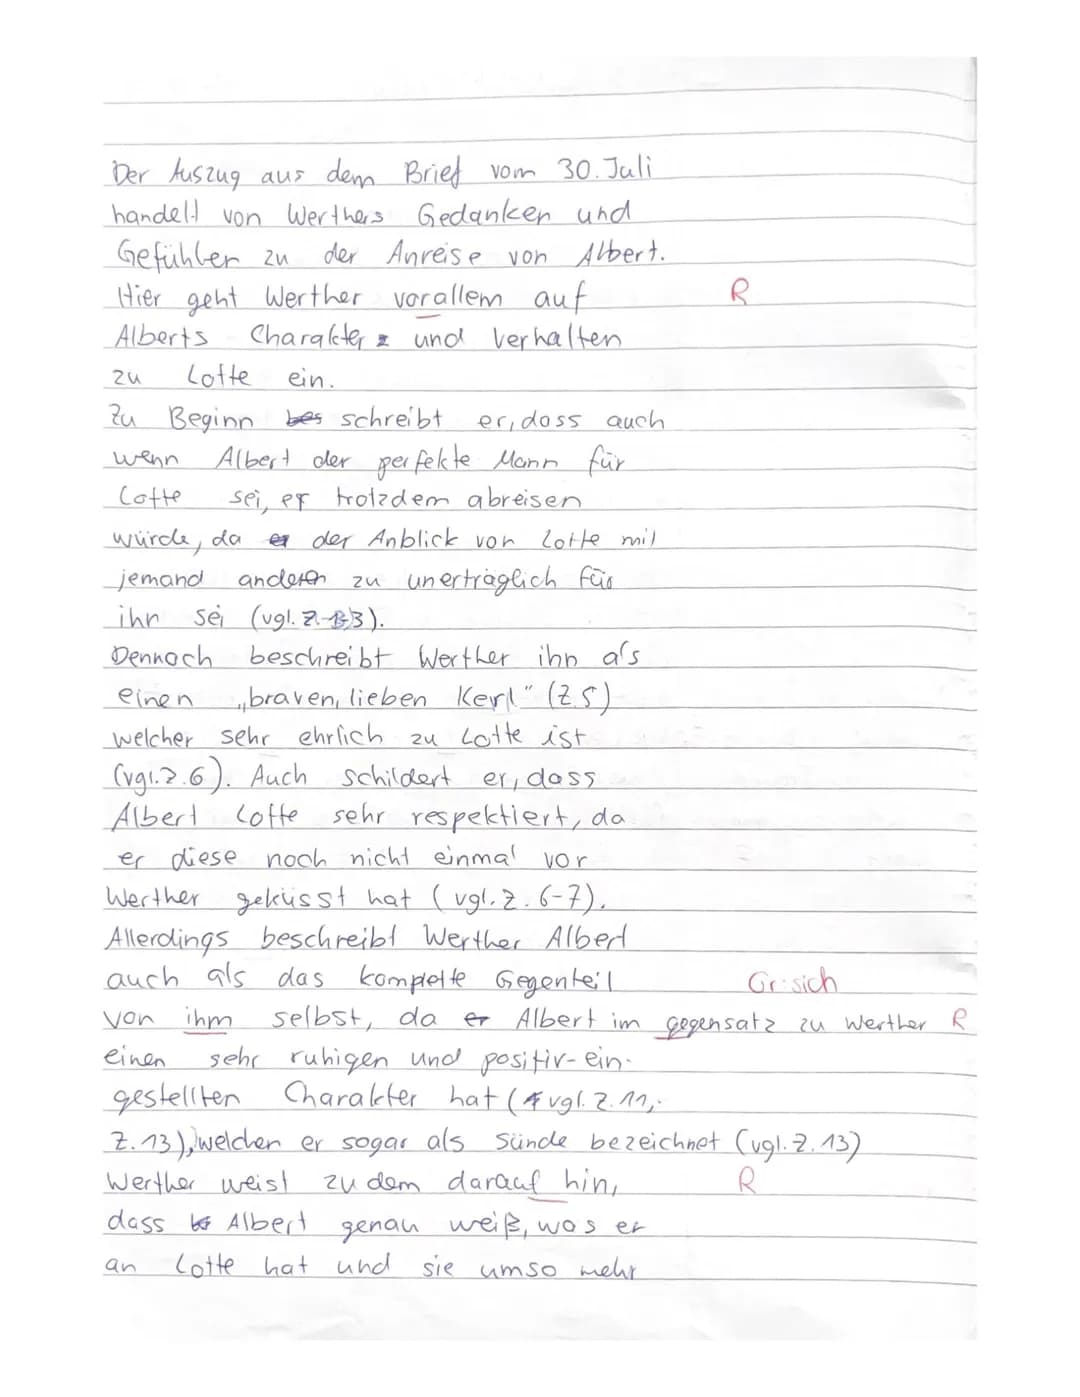 Der Auszug aus dem Brief vom 30. Juli
handelt von Werthers Gedanken und
Gefühlen zu der Anreise von Albert.
Hier geht Werther vorallem auf R
Alberts Charakter und Verhalten
zu Lotte ein.
Zu Beginn bes schreibt er, dass auch
wenn Albert der perfekte Mann für
Lotte sei, er trotzdem abreisen
würde, da er der Anblick von Lotte mit
jemand anderen zu unerträglich für
ihn sei (vgl. Z. 1-3).
Dennoch beschreibt Werther ihn als
einen „braven, lieben Kerl" (Z. 5)
welcher sehr ehrlich zu Lotte ist
(vgl. Z. 6). Auch schildert er, dass
Albert Lotte sehr respektiert, da
er diese noch nicht einmal vor
Werther geküsst hat (vgl. Z. 6-7).
Allerdings beschreibt Werther Albert
auch als das komplette Gegenteil Gr: sich
von ihm selbst, da er Albert im gegensatz zu Werther R
einen sehr ruhigen und positiv-ein-
gestellten Charakter hat (vgl. Z. 11,
Z. 13), welchen er sogar als Sünde bezeichnet (vgl. Z. 13)
Werther weist zu dem darauf hin, R
dass Albert genau weiß, was er
an Lotte hat und sie umso mehr